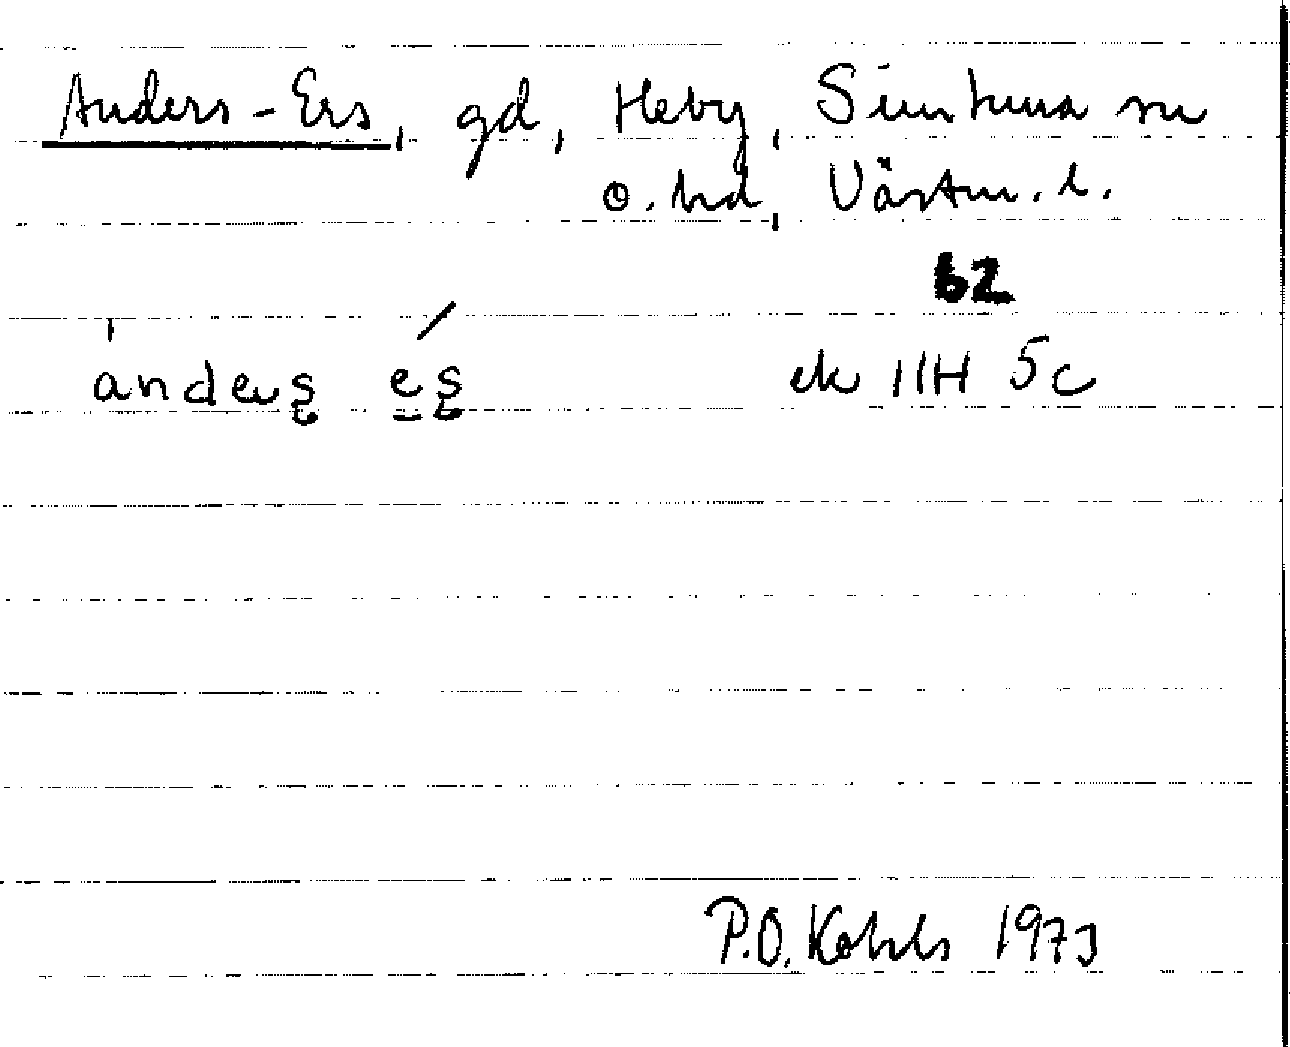 Anders-Ers, gd, Heby, Simtuna sn
o. hd, Västm. l.
62
anders es
ek 11H 5c
P.O. Kohls 1973